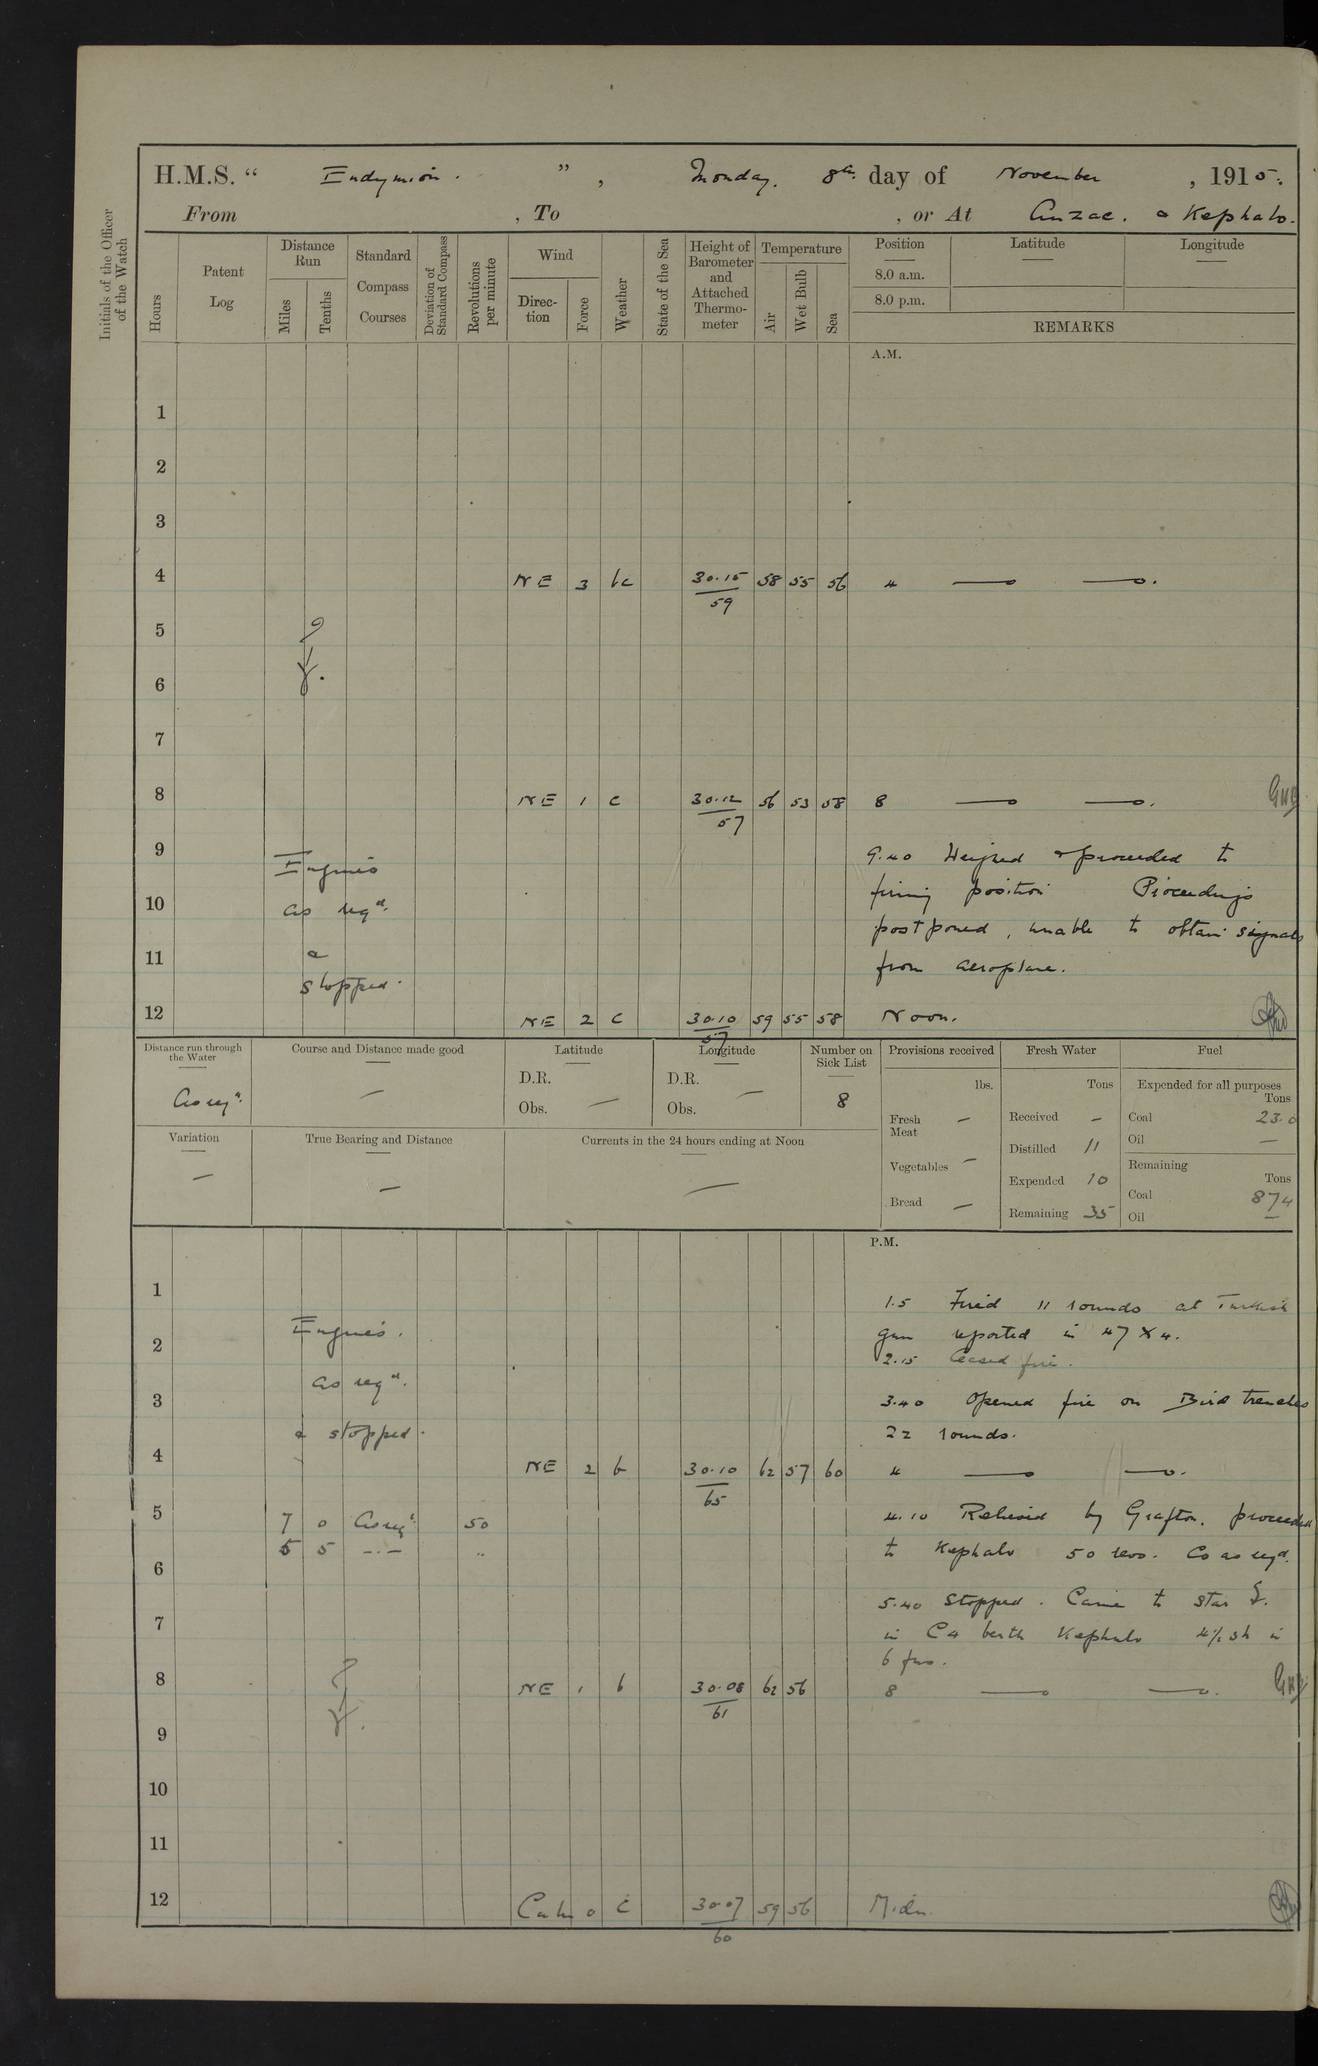 H.M.S. “ Endymion. ” , Monday. 8th day of November , 1915.
From , To , or At Anzac. & Kephalo.
Initials of the Officer of the Watch
Hours
Patent Log
Distance Run
Miles
Tenths
Standard Compass Courses
Deviation of Standard Compass
Revolutions per minute
Wind
Direc-tion
Force
Weather
State of the Sea
Height of Barometer and Attached Thermo-meter
Temperature
Air
Wet Bulb
Sea
Position
8.0 a.m.
8.0 p.m.
Latitude
Longitude
REMARKS
A.M.
1
2
3
4 NE 3 bc 30.15 58 55 56 4 — —.
59
5
6
7
8 NE 1 c 30.12 56 53 58 8 — —.
57
9 Engines 9.40 Weighed & proceeded to
10 as reqd. firing position Proceedings
postponed, unable to obtain signals
11 & from aeroplane.
stopped.
12 NE 2 c 30.10 59 55 58 Noon.
57
Distance run through the Water
As reqd.
Course and Distance made good
—
Latitude
D.R.
Obs. —
Longitude
D.R.
Obs. —
Number on Sick List
8
Provisions received
lbs.
Fresh Meat —
Vegetables —
Bread —
Fresh Water
Tons
Received —
Distilled 11
Expended 10
Remaining 35
Fuel
Expended for all purposes
Tons
Coal 23.0
Oil —
Remaining
Tons
Coal 874
Oil —
Variation
—
True Bearing and Distance
—
Currents in the 24 hours ending at Noon
—
P.M.
1 1.5 Fired 11 rounds at Turkish
2 Engines. gun reported in 47 X 4.
2.15 Ceased fire.
as reqd.
3 3.40 Opened fire on Bird trenches
& stopped. 22 rounds.
4 NE 2 b 30.10 62 57 60 4 — —.
65
5 7 0 As reqd 50 4.10 Relieved by Grafton. proceeded
5 5 -.- " to Kephalo 50 revs. Co as reqd.
6
5.40 Stopped. Came to star
7 in C4 berth Kephalo 4½ sh in
6 fms.
8 NE 1 b 30.08 62 56 8 — —.
61
9
10
11
12 Calm 0 c 30.07 59 56 Midn.
60